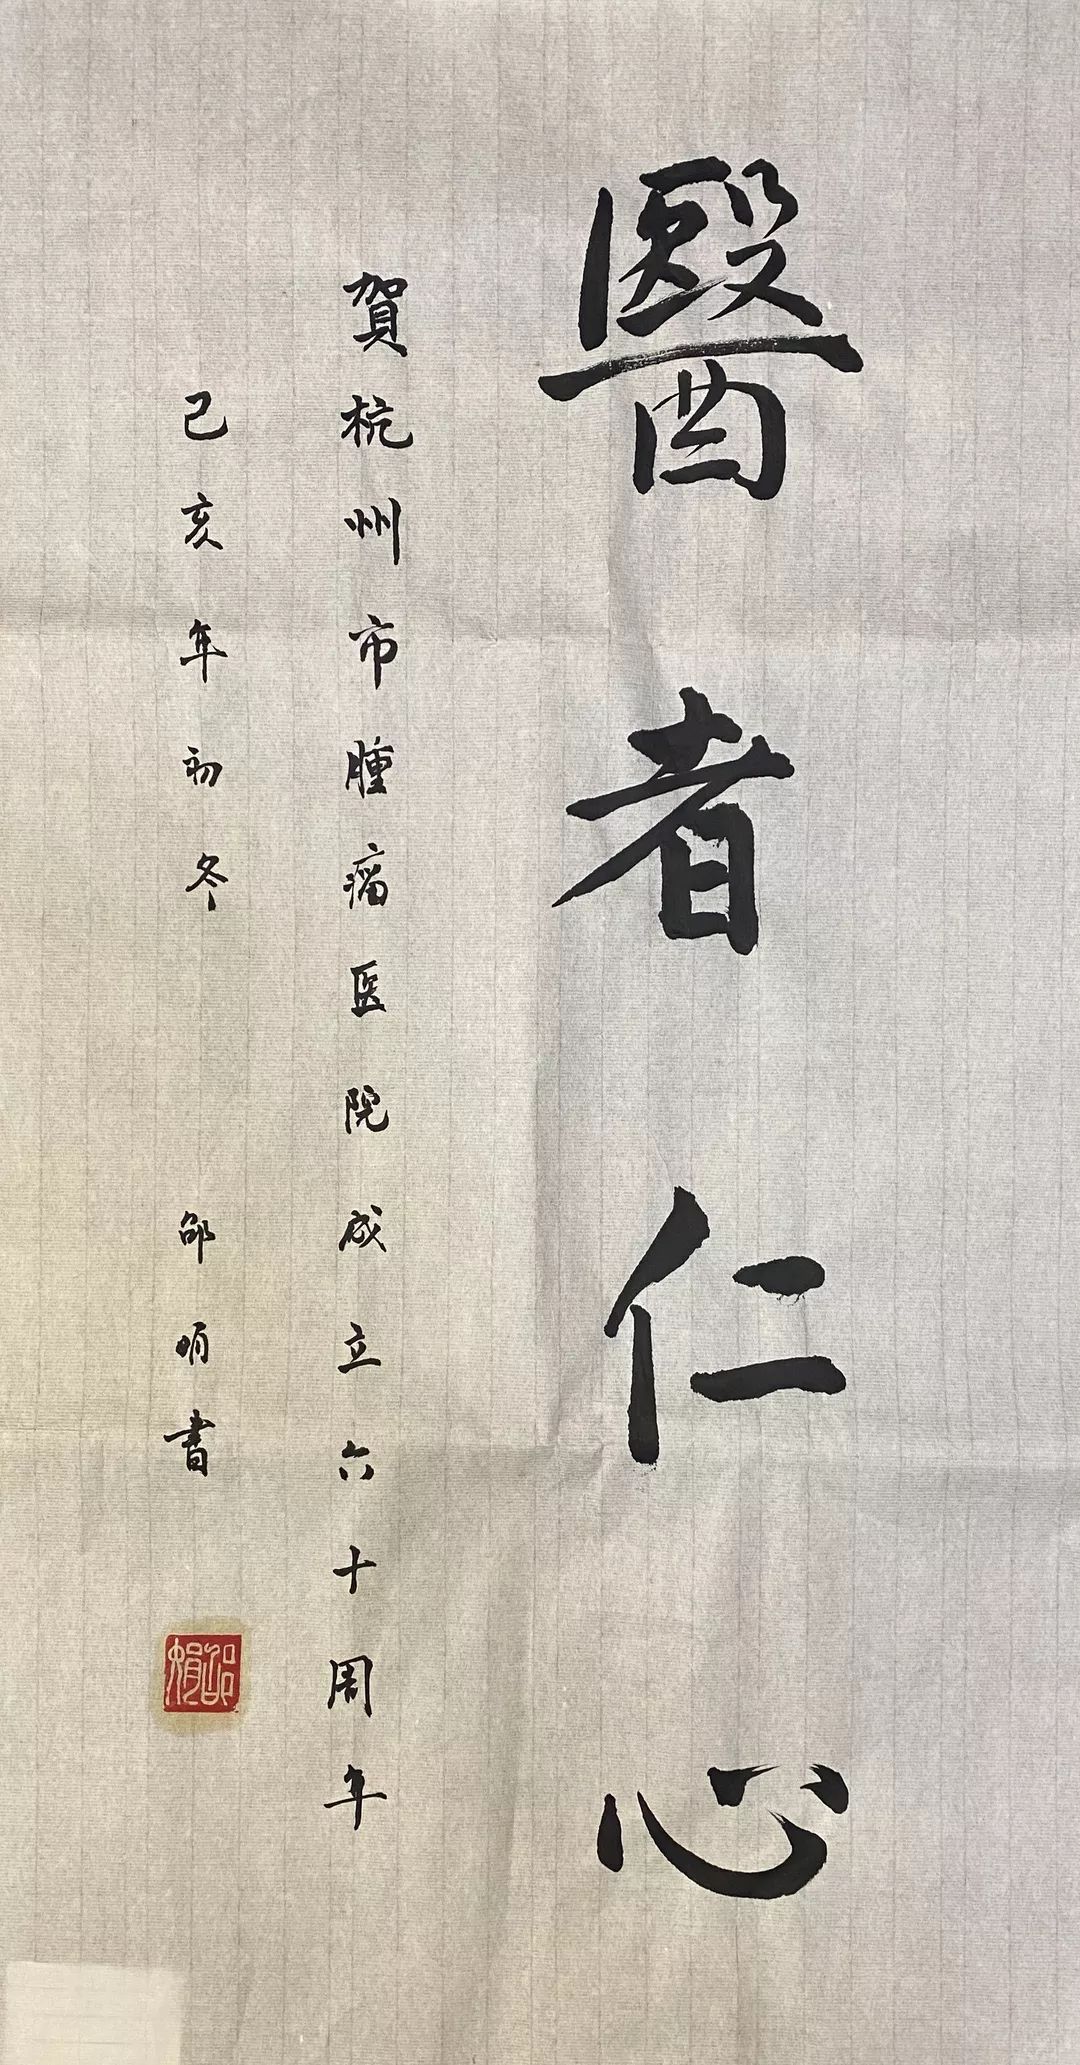 醫者仁心
賀杭州市腫瘤医院成立六十周年
己亥年初冬 邵娟書
邵娟